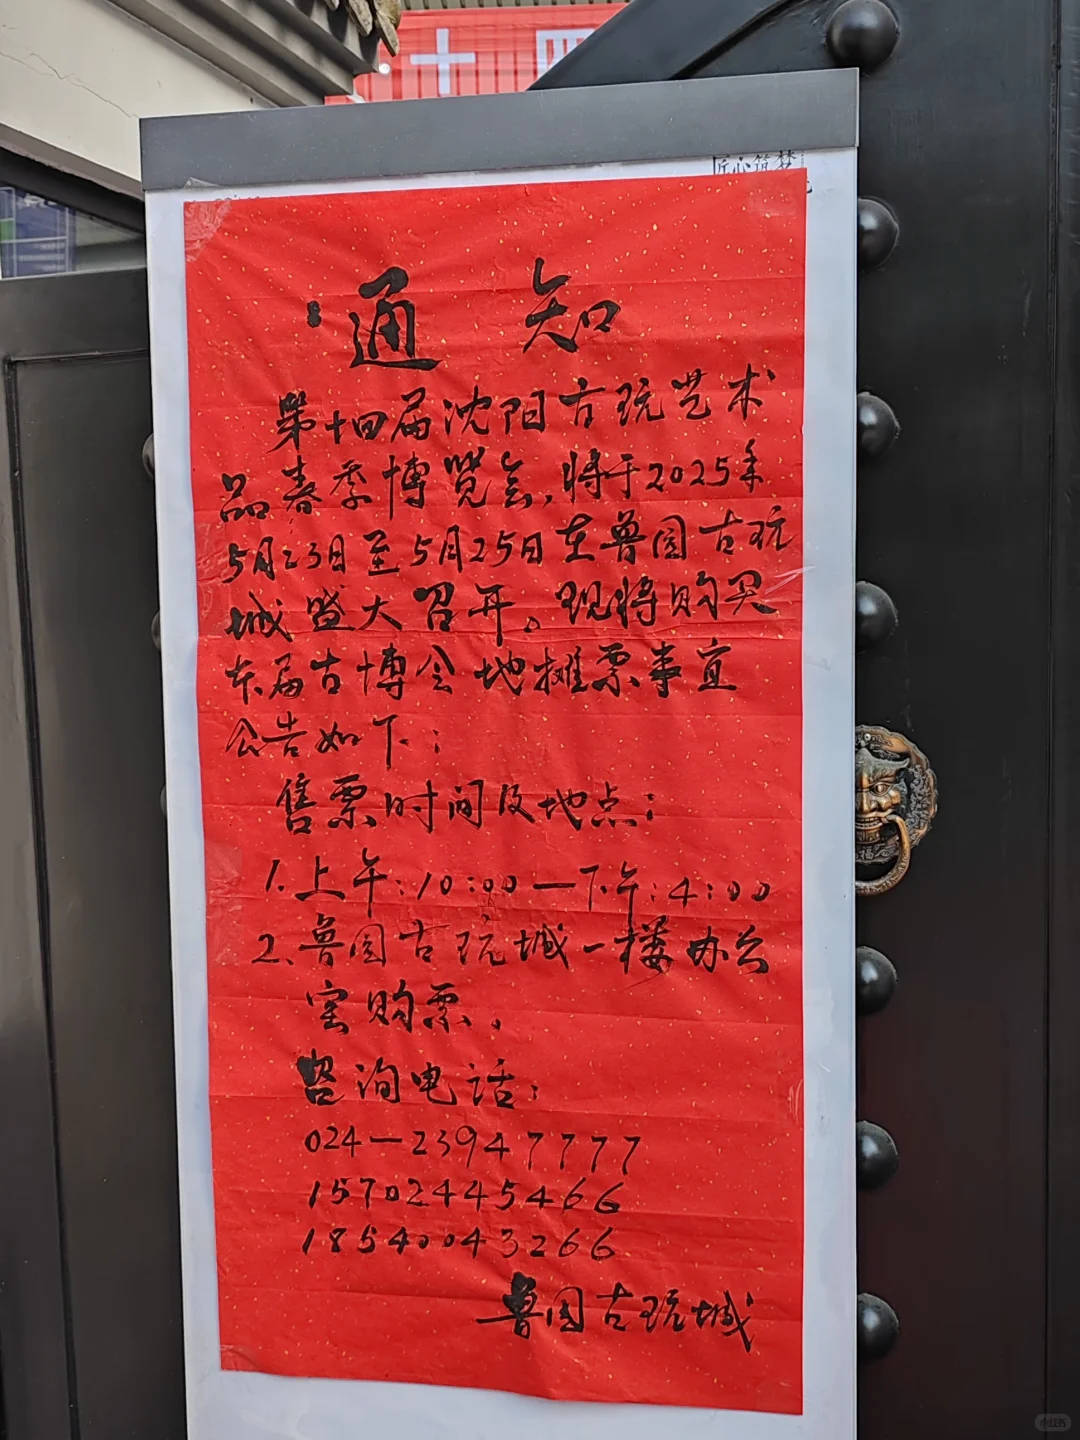 十四
匠心筑梦
通知
第十四届沈阳古玩艺术
品春季博览会,将于2025年
5月23日至5月25日在鲁园古玩
城盛大召开。现将购买
本届古博会地摊票事宜
公告如下:
售票时间及地点:
1.上午:10:00—下午:4:00
2.鲁园古玩城一楼办公
室购票。
咨询电话:
024—23947777
15702445466
18540043266
鲁园古玩城